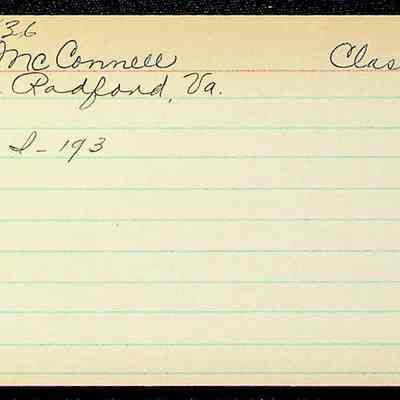 36
McConnell Clas
Radford, Va.
I-193